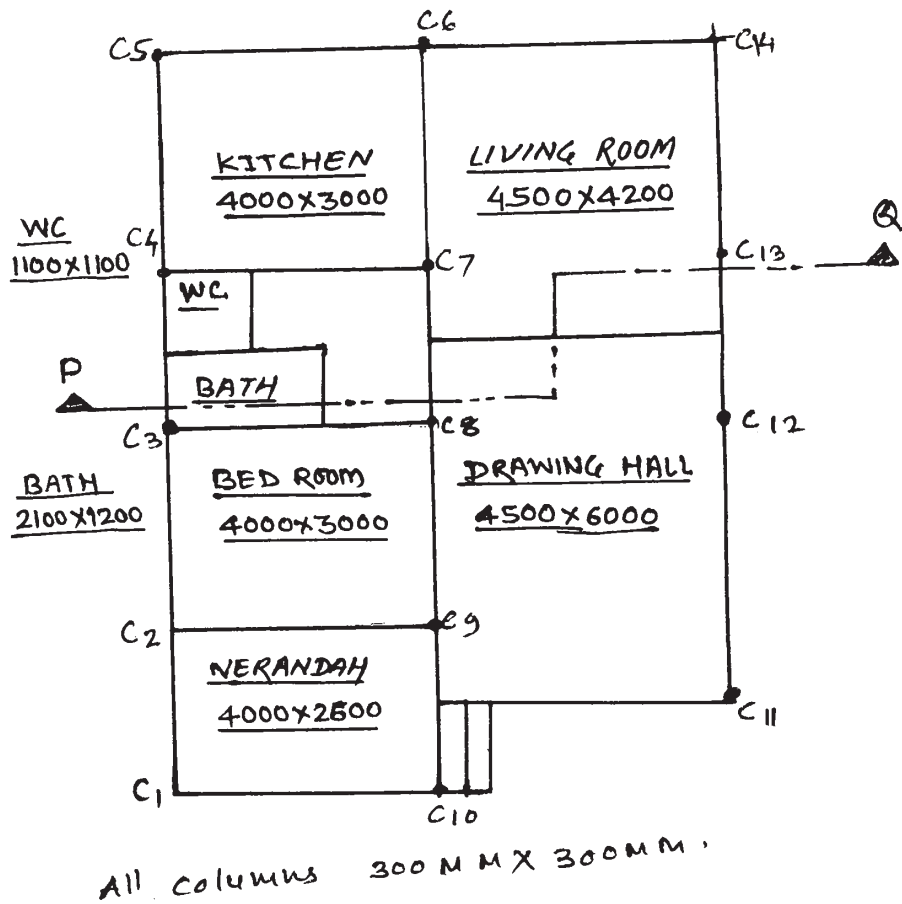 C5
C6
C14
KITCHEN
4000X3000
LIVING ROOM
4500X4200
WC
1100X1100
C4
C7
C13
Q
WC
P
BATH
C3
C8
C12
BATH
2100X1200
BED ROOM
4000X3000
DRAWING HALL
4500X6000
C2
C9
NERANDAH
4000X2500
C1
C10
C11
All columns 300MMX300MM.